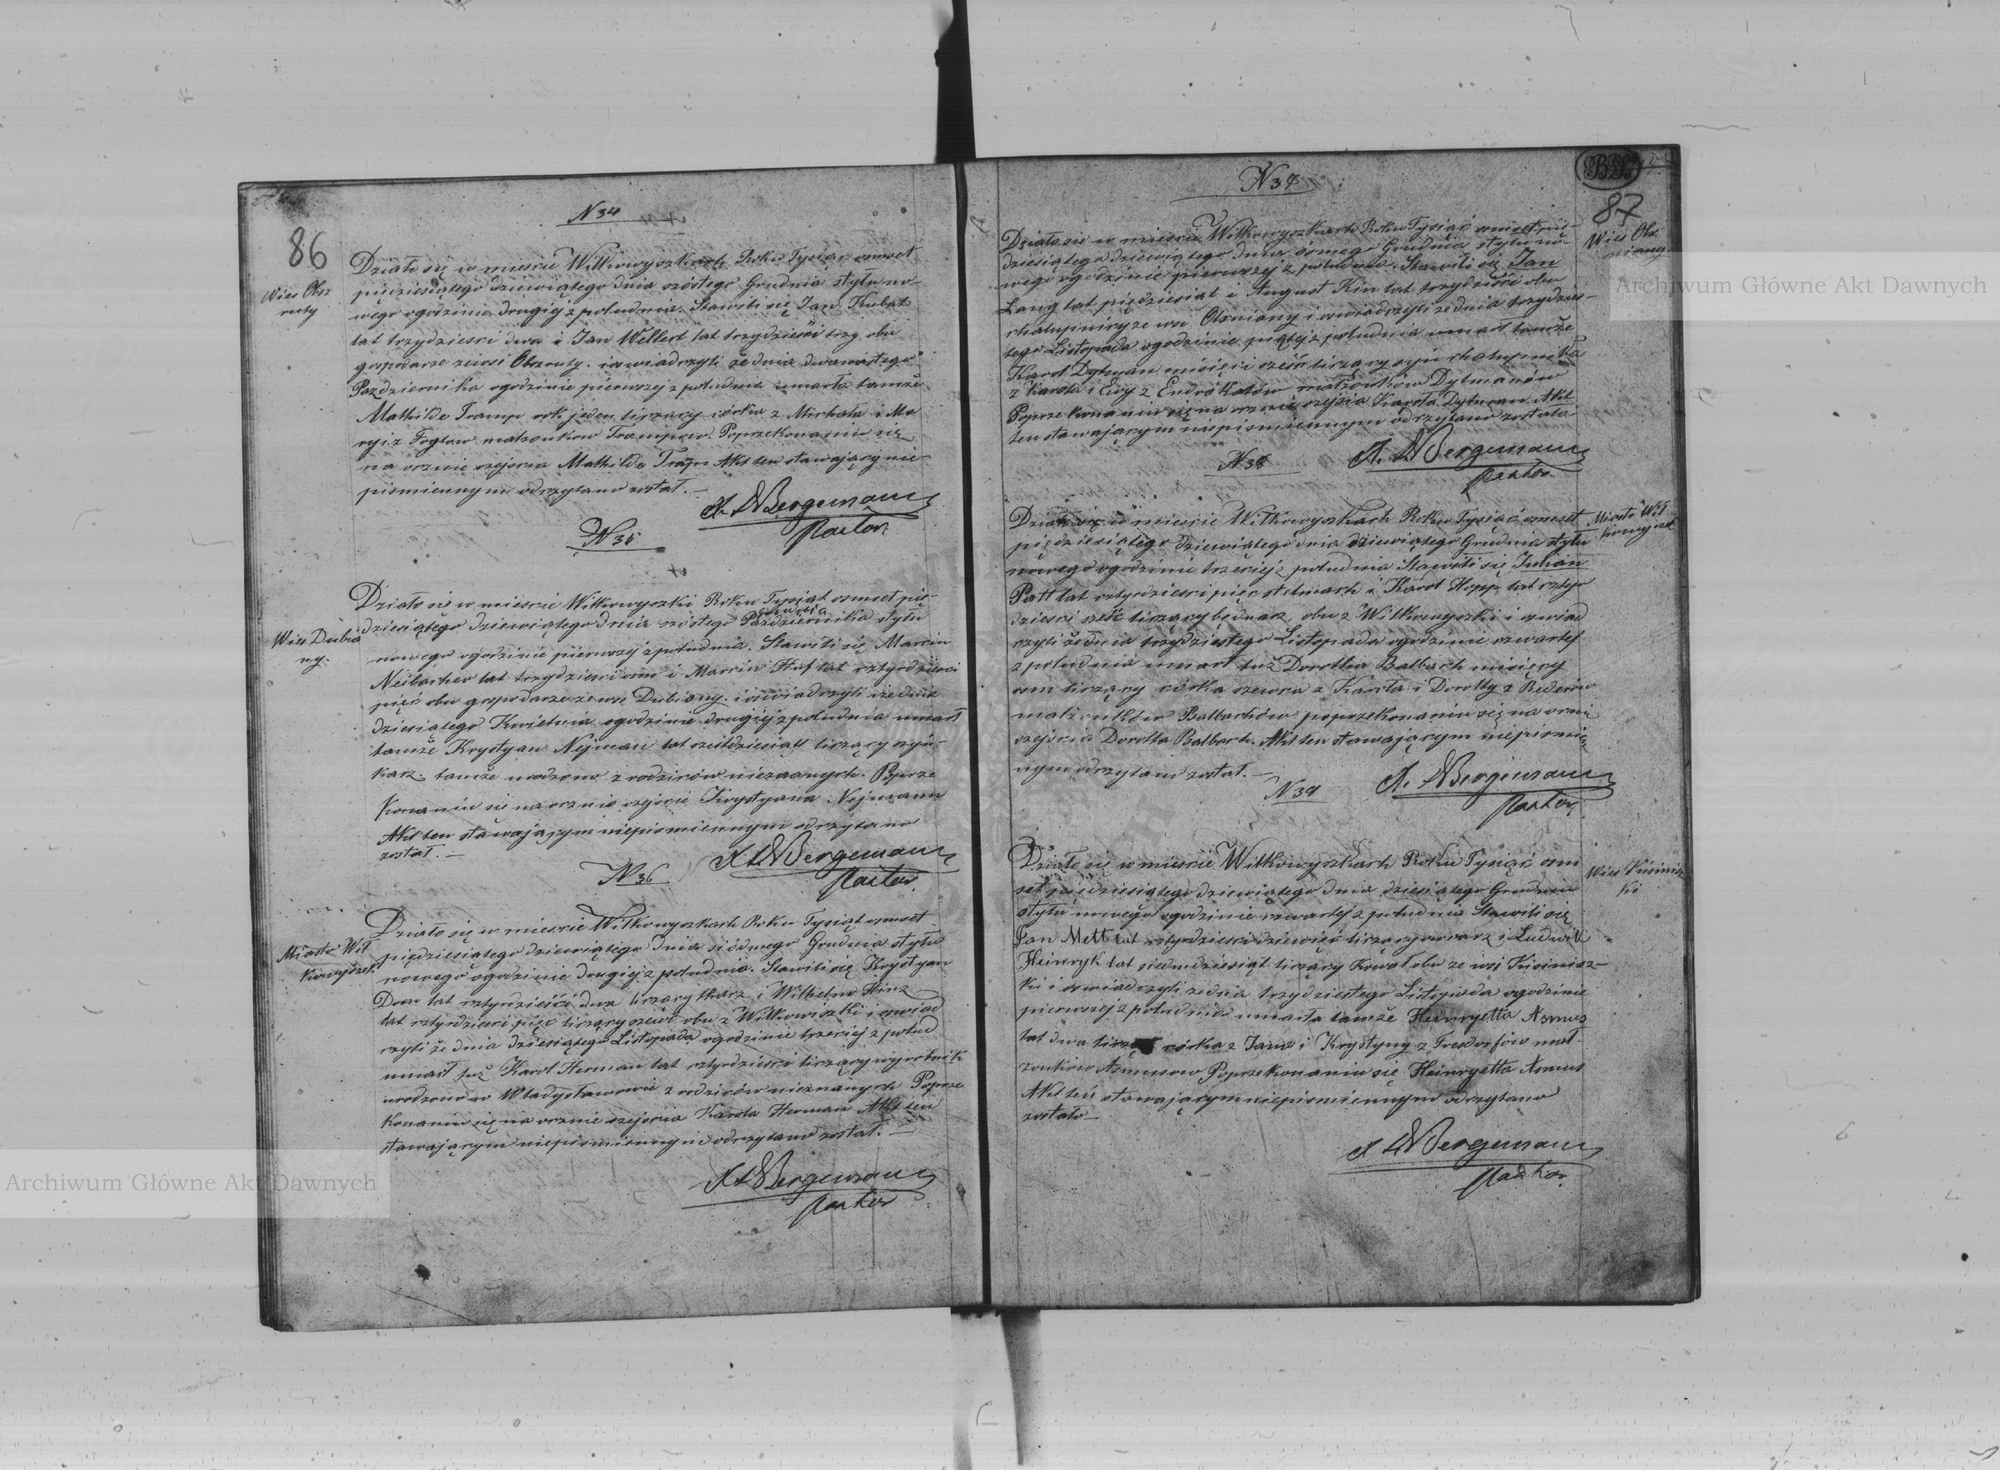 86
N 34
Wieś Obs
ruty
Działo się w mieście Wilkowyszkach Roku Tysiąc osmset
pięćdziesiątego dziewiątego dnia szóstego Grudnia stylu no-
wego ogodzinie drugiej z południa. Stawili się Jan Kubat
lat trzydzieści dwa i Jan Wellert lat trzydzieści trzy obu
gospodarze zewsi Obsruty. i oswiadczyli że dnia dwunastego
Pazdziernika ogodzinie pierwszej z południa umarła tamże
Mathilde Tramp rok jeden liczący córka z Michała i Ma
ryi z małzonkow Trampow. Poprzekonaniu się
na ocznie zejscia Mathilde Tramp Akt ten stawający nie
pismiennym odczytano został. —
A. W Bergemann
Pastor.
N 35
Wieś Dubia
ny.
Działo sie w miescie Wilkowyszki Roku Tysiąc osmset pię-
dziesiątego dziewiątego dnia szóstego Pazdziernika stylu
Grudnia
nowego ogodzinie pierwszej z południa. Stawili się Marcin
lat trzydzieści osm i Marcin lat czterdzieści
pięć obu gospodarze ze wsi Dubiany i oswiadczyli że dnia
dziesiątego Kwietnia ogodzinie drugiej z południa umarł
tamże Krystyan Nejman lat sześdziesiąt liczący
karz. tamże urodzono z rodziców nieznanych. Poprze
konaniu się na ocznie zejscie Krystyana Nejmann
Akt ten stawającym niepismiennym odczytano
został. —
A W Bergemann
Pastor.
N 36
Miasto Wił
kowyszki
Działo się w mieście Wilkowyszkach Roku Tysiąc osmset
pięćdziesiątego dziewiątego dnia siódmego Grudnia stylu
nowego ogodzinie drugiej z południa. Stawili się Krystyan
Dom lat cztyrdzieści dwa liczący tkarz i Wilhelm Hinz
lat cztyrdzieści pięć liczący szewc obu z Wilkowyszki i oswiad
czyli że dnia dziesiątego Listopada ogodzinie trzeciej z połud
umarł tuż Karol Herman lat cztyrdzieści liczący wyrobnik
urodzono w Władysławowie z rodziców nieznanych Poprze
konaniu się na ocznie zejscia Karola Herman Akt ten
stawającym niepismiennym odczytano został. —
A W Bergemann
Pastor
87
N 37
Wieś
Działo sie w mieście Wilkowyszkach Roku Tysiąć osmset pię-
dziesiątego dziewiątego dnia ósmego Grudnia stylu no-
wego ogodzinie pierwszej z południa. Stawili się Jan
Lang lat pięćdziesiat i August Kin lat trzydzieści obu
chałupnicy ze wsi i oswiadczyli że dnia trzydzies-
tego Listopada ogodzinie piątej z południa umarł tamże
Karol Dytman miesięcy sześć liczący syn chałupnika
z Karola i Ewy z małżonków Dytmanów
Poprzekonaniu się na ocznie zejścia Karola Dytman Akt
ten stawającym niepismiennym odczytano została
A. W Bergemann
Pastor.
N 38
Miasto Wił
kowyszki
Działo się w mieście Wilkowyszkach Roku Tysiąć osmset
pięćdziesiątego dziewiątego dnia dziewiątego Grudnia stylu
nowego ogodzinie trzeciej z południa Stawili się Julian
Patt lat cztyrdzieści pięć stelmach i Karol lat cztyr
dzieści sześć liczący bednarz, obu z Wilkowyszki i oswiad
czyli że dnia trzydziestego Listopada ogodzinie czwartej
z południa umarł tuż Dorothea Balbach miesięcy
osm liczący córka szewca z Karola i Dorotty z Rederów
małżonków Balbachów poprzekonaniu się na ocznie
zejscia Dorotta Balbach. Akt ten stawającym niepismie
nym odczytano został. —
A. W Bergemann
Pastor.
N 39
Wieś Kisinisz
ki
Działo się w mieście Wilkowyszkach Roku Tysiąć osm
set pięćdziesiątego dziewiątego dnia dziesiątego Grudnia
stylu nowego ogodzinie czwartej z południa Stawili się
Jan Mett lat cztyrdzieści dziewięć liczący owczarz i Ludwik
Heinryk lat siedmdziesiąt liczący Kowal obu ze wsi Kisinisz-
ki i oswiadczyli że dnia trzydziestego Listopada ogodzinie
pierwszej z południa umarła tamże Heinryetta Asmus
lat dwa licząc córka z Jana i Krystyny z mał-
żonków Asmusow Poprzekonaniu się Heinryetta Asmus
Akt ten stawającym niepismiennym odczytano
zostało—
A W Bergemann
Pastor.
Archiwum Główne Akt Dawnych
Archiwum Główne Akt Dawnych